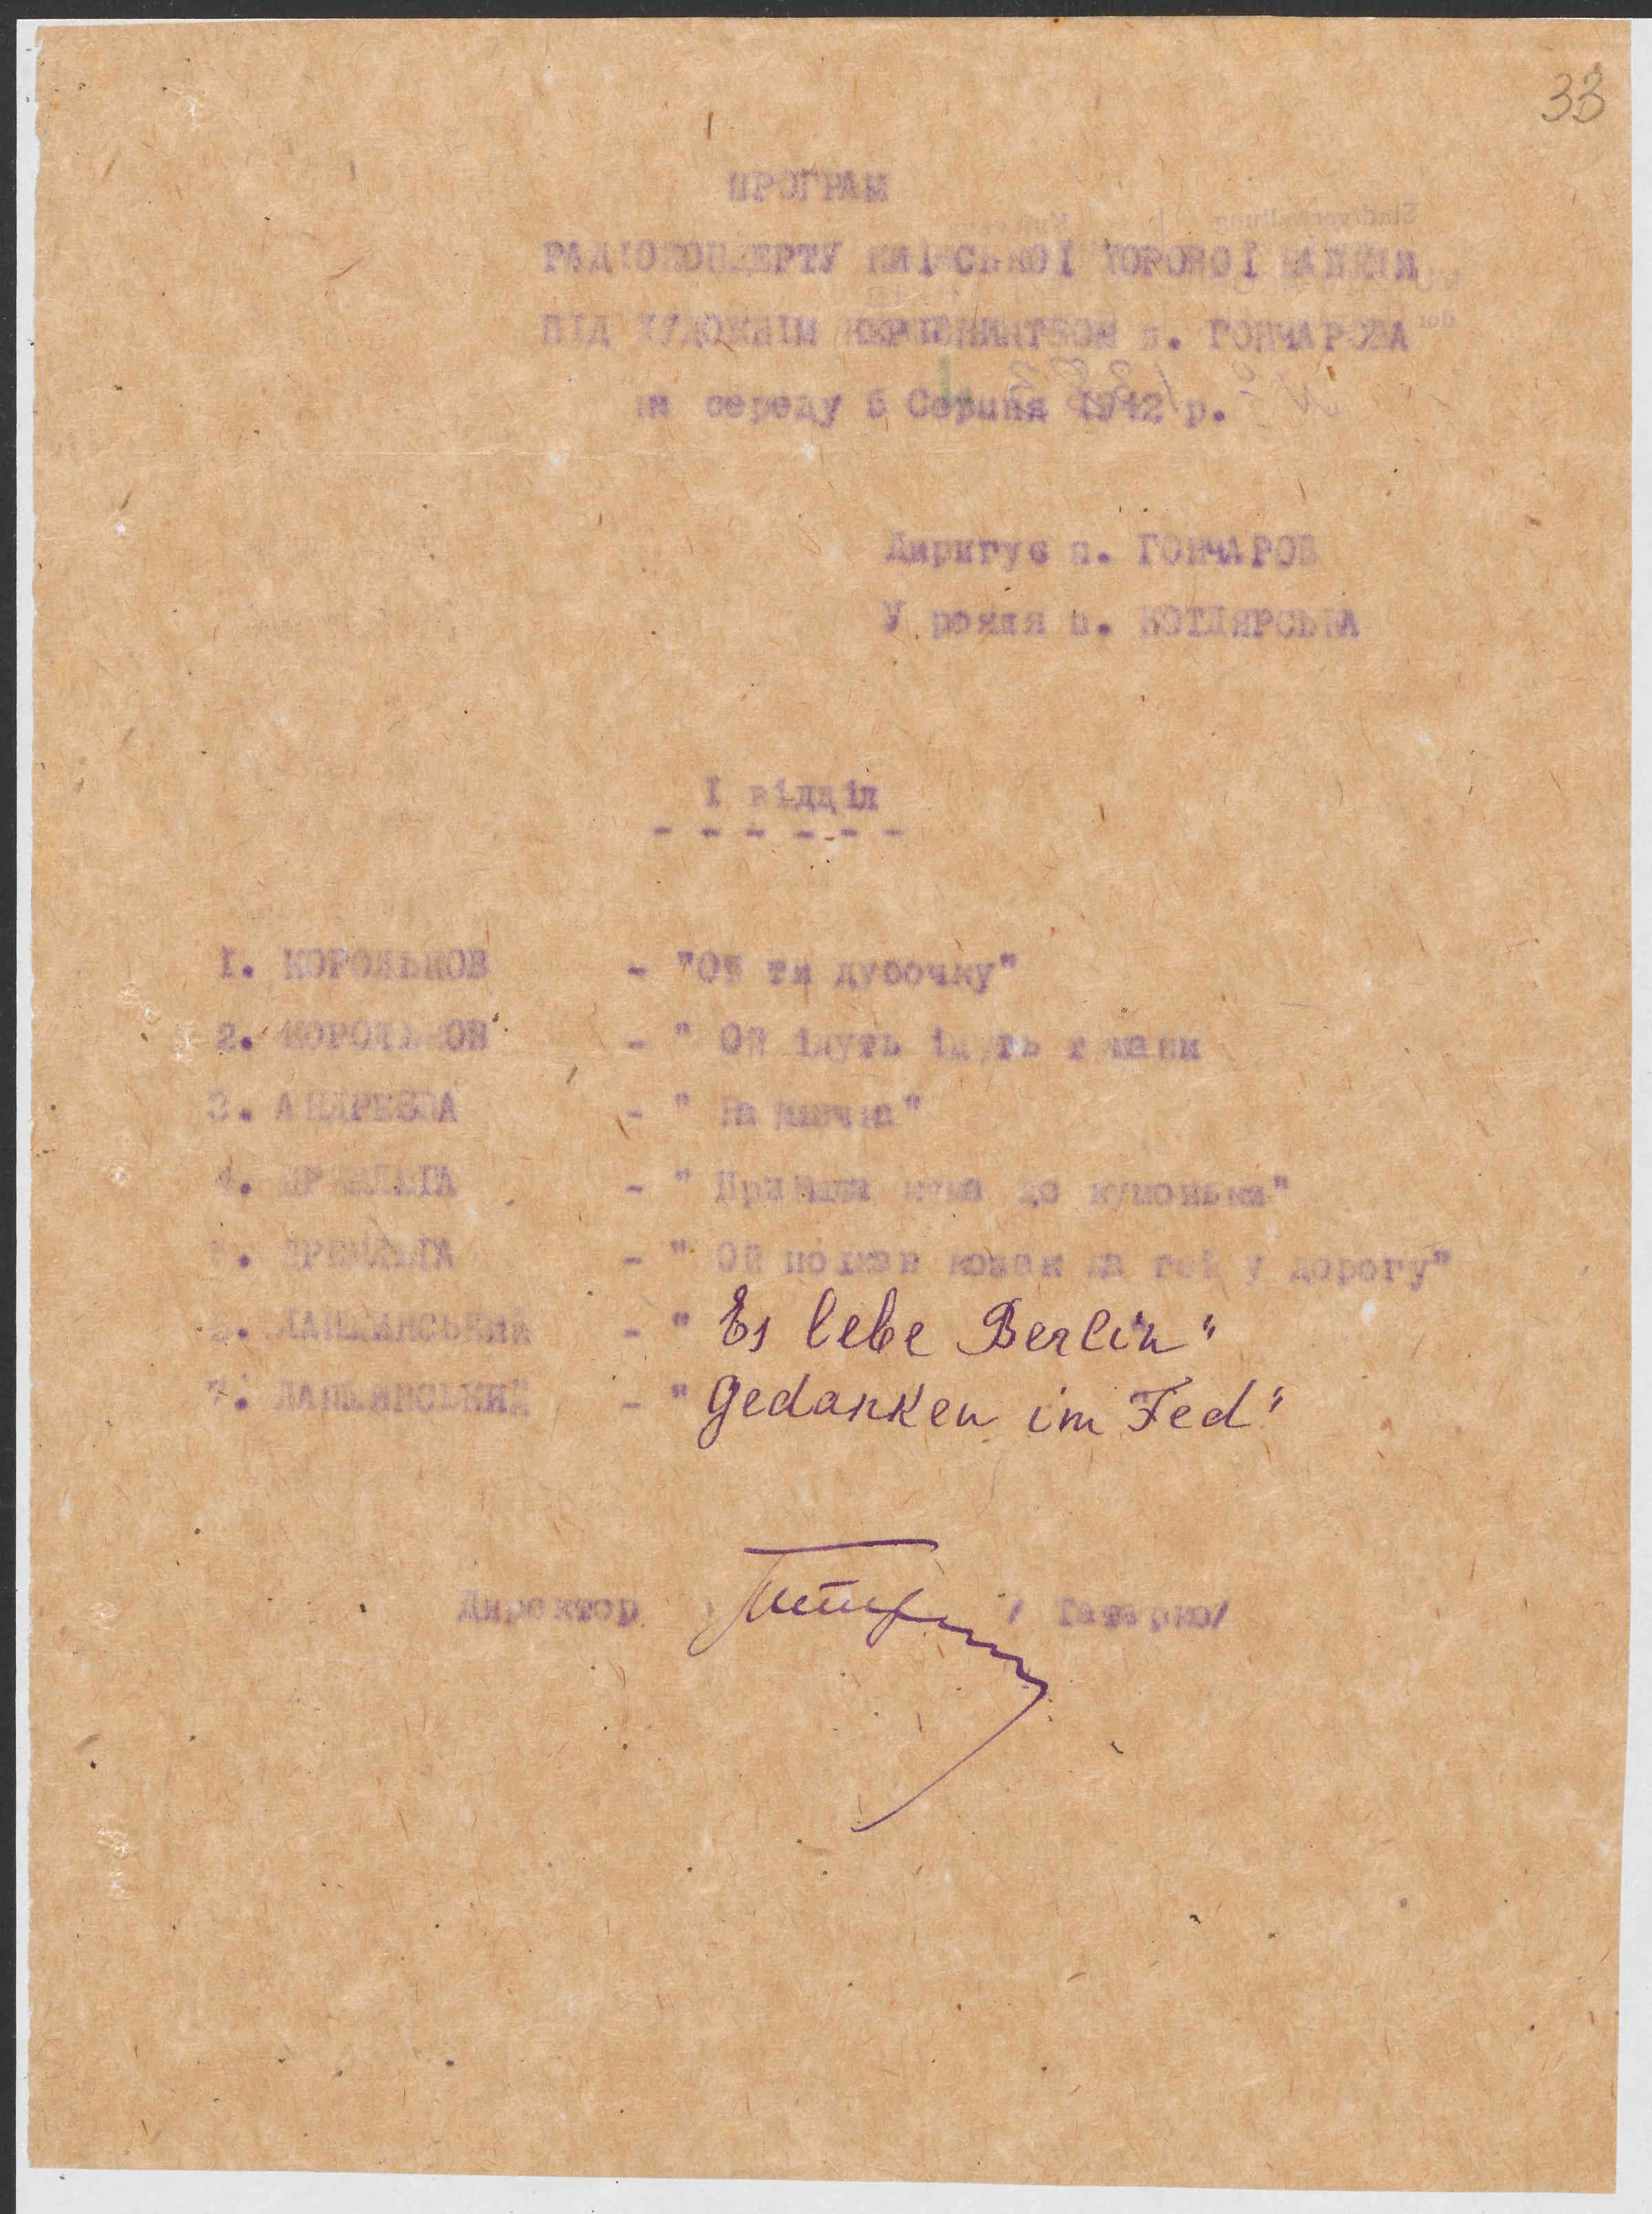 33
ПРОГРАМ
РАДІОКОНЦЕРТУ КИЇВСЬКОЇ ХОРОВОЇ КАПЕЛИ
ПІД ХУДОЖНІМ КЕРІВНИЦТВОМ п. ГОНЧАРОВА
на середу 5 Серпня 1942 р.
Диригує п. ГОНЧАРОВ
У рояля п. КОТЛЯРСЬКА
I відділ
- - - - - -
I. КОРОЛЬКОВ - "Ой ти дубочку"
2. КОРОЛЬКОВ - " Ой ідуть ідуть тумани
3. АНДРЕЄВА - " Галичка"
4. - " Прийшла кума до кумоньки"
5. - " Ой поїхав козак да гей у дорогу"
6. - " Es lebe Berlin"
7. - " Gedanken im Fed"
Директор / Татарко/